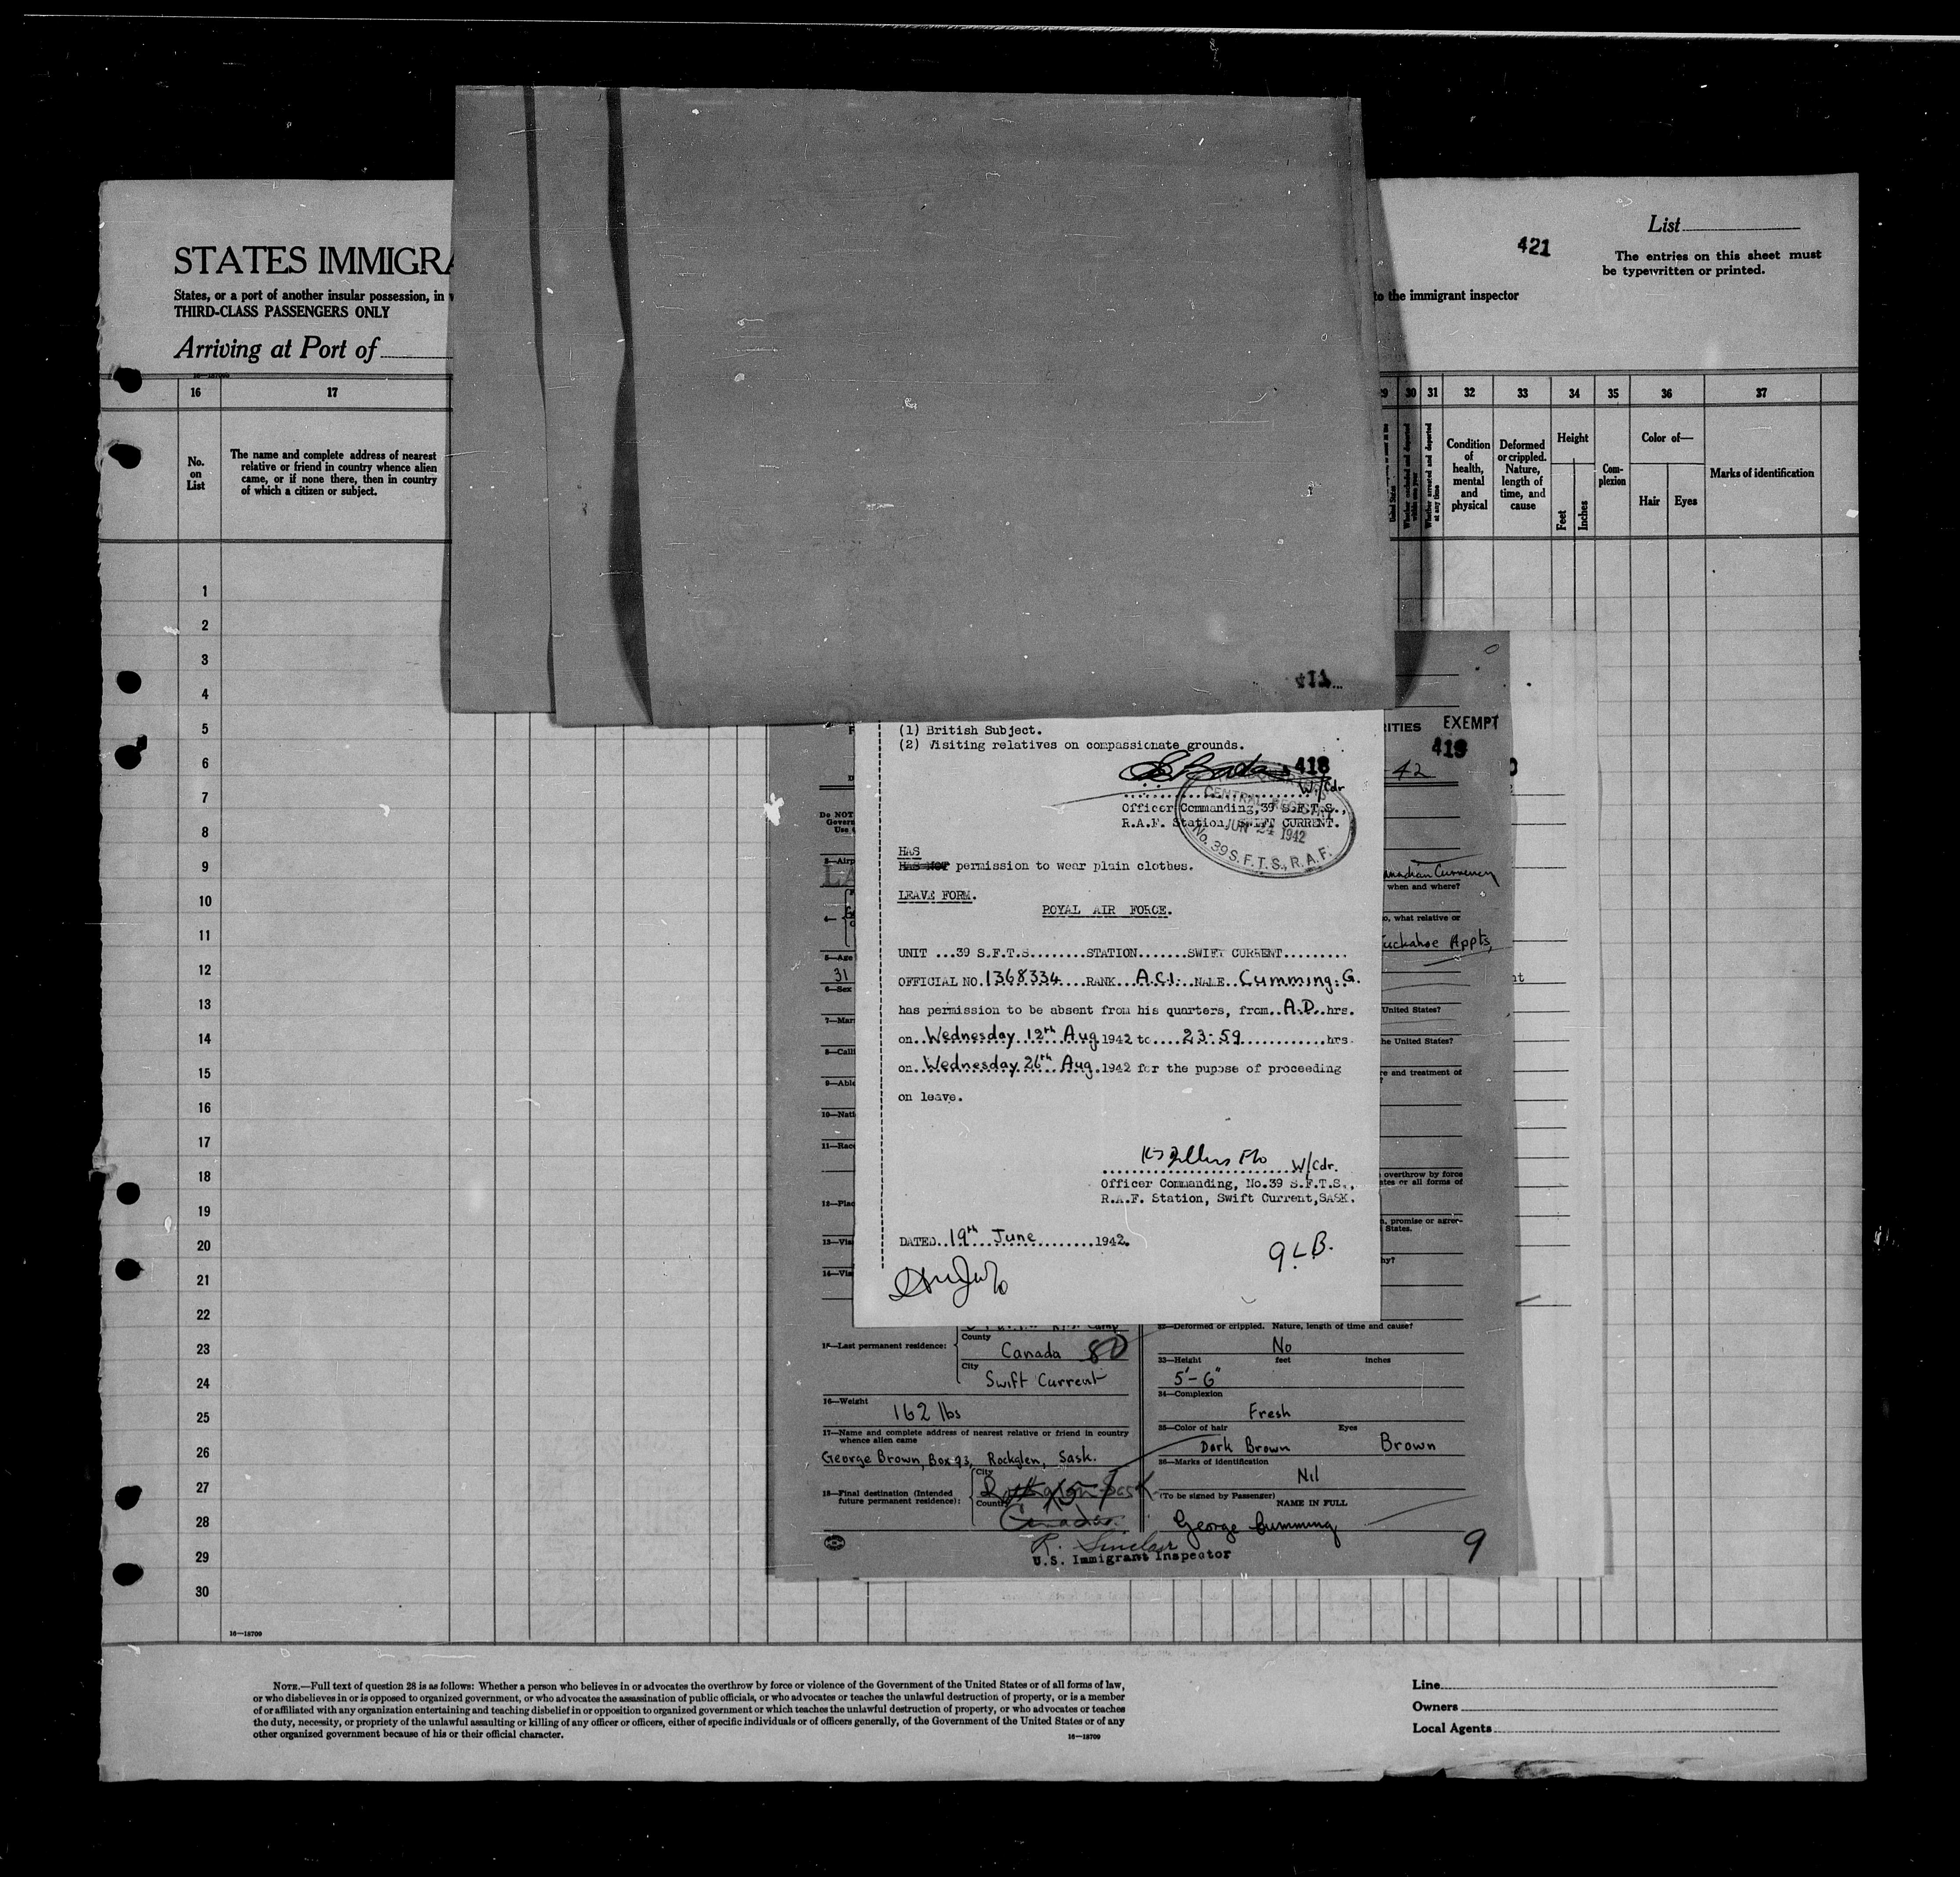 STATES IMMIGRA
States, or a port of another insular possession, in
THIRD-CLASS PASSENGERS ONLY
Arriving at Port of
421
List
The entries on this sheet must
be typewritten or printed.
to the immigrant inspector
16 17
No.
on
List
The name and complete address of nearest
relative or friend in country whence alien
came, or if none there, then in country
of which a citizen or subject.
30 31 32 33 34 35 36 37
Whether excluded and deported
within one year
Whether arrested and deported
at any time
Condition
of
health,
mental
and
physical
Deformed
or crippled.
Nature,
length of
time, and
cause
Height
Feet
Inches
Com-
plexion
Color of—
Hair
Eyes
Marks of identification
1
2
3
4
5
6
7
8
9
10
11
12
13
14
15
16
17
18
19
20
21
22
23
24
25
26
27
28
29
30
16—18709
411
(1) British Subject.
(2) Visiting relatives on compassionate grounds.
418
W/Cdr
Officer Commanding, 39 S.F.T.S.,
R.A.F. Station, SWIFT CURRENT.
CENTRAL REGISTRY
JUN 24 1942
No. 39 S.F.T.S., R.A.F.
HAS
HAS NOT permission to wear plain clothes.
LEAVE FORM.
ROYAL AIR FORCE.
UNIT ...39 S.F.T.S........STATION.......SWIFT CURRENT.........
OFFICIAL NO.1368334....RANK...A.C.1...NAME..Cumming. G.
has permission to be absent from his quarters, from..A.D..hrs.
on..Wednesday 12th Aug 1942 to....23-59............hrs.
on..Wednesday 26th Aug.1942 for the pupose of proceeding
on leave.
W/Cdr.
Officer Commanding, No.39 S.F.T.S.,
R.A.F. Station, Swift Current,SASK.
DATED..19th June........1942.
G.L.B.
ITIES EXEMPT
419
-42
Canadian Currency
when and where?
o, what relative or
Tuckahoe Appts,
United States?
he United States?
re and treatment of
overthrow by force
ates or all forms of
, promise or agree-
States.
hy?
Do NOT
Govern
Use
3—Airp
LA
4—
5—Age
31
6—Sex
7—Mar
8—Calli
9—Able
10—Nati
11—Race
12—Plac
13—Vis
14—Vis
15—Last permanent residence:
County
Canada 80
City
Swift Current
16—Weight
162 lbs
17—Name and complete address of nearest relative or friend in country
whence alien came
George Brown, Box 93, Rockglen, Sask.
18—Final destination (Intended
future permanent residence):
City
Rockglen Sask
Country
Canada
32—Deformed or crippled. Nature, length of time and cause?
No
33—Height feet inches
5'-6"
34—Complexion
Fresh
35—Color of hair Eyes
Dark Brown Brown
36—Marks of identification
Nil
(To be signed by Passenger)
NAME IN FULL
George Cumming
R. Sinclair
U.S. Immigrant Inspector
9
NOTE.—Full text of question 28 is as follows: Whether a person who believes in or advocates the overthrow by force or violence of the Government of the United States or of all forms of law,
or who disbelieves in or is opposed to organized government, or who advocates the assassination of public officials, or who advocates or teaches the unlawful destruction of property, or is a member
of or affiliated with any organization entertaining and teaching disbelief in or opposition to organized government or which teaches the unlawful destruction of property, or who advocates or teaches
the duty, necessity, or propriety of the unlawful assaulting or killing of any officer or officers, either of specific individuals or of officers generally, of the Government of the United States or of any
other organized government because of his or their official character.
16—18709
Line
Owners
Local Agents